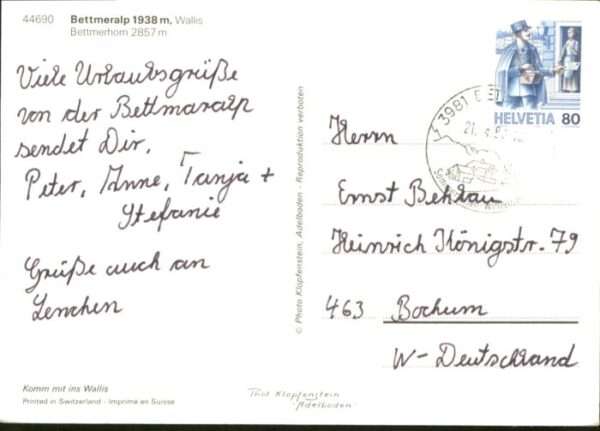 44690 Bettmeralp 1938 m, Wallis
Bettmerhorn 2857 m
Viele Urlaubsgrüße
von der Bettmaralp
sendet Dir,
Peter, Anne, Tanja +
Stefanie
Grüße auch an
Lenchen
Komm mit ins Wallis
Printed in Switzerland - Imprimé en Suisse
© Photo Klopfenstein, Adelboden - Reproduktion verboten
Phot Klopfenstein
Adelboden
HELVETIA 80
3981 BET
Herrn
Ernst Behlau
Heinrich Königstr. 79
463 Bochum
W-Deutschland